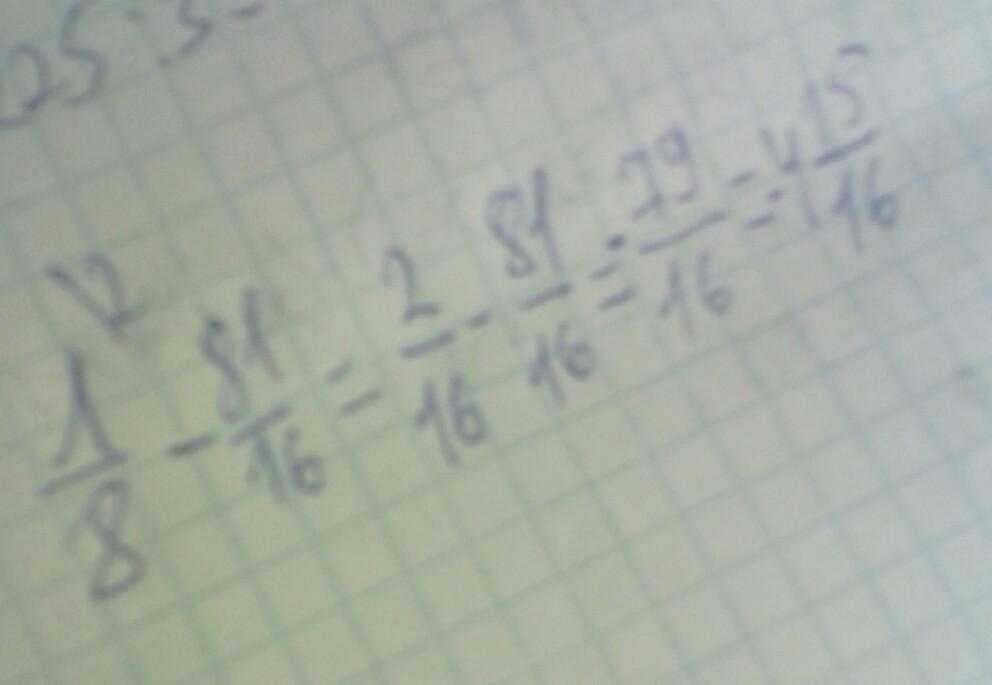 25 · 3 -
\2
1/8 - 81/16 = 2/16 - 81/16 = 79/16 = 4 15/16